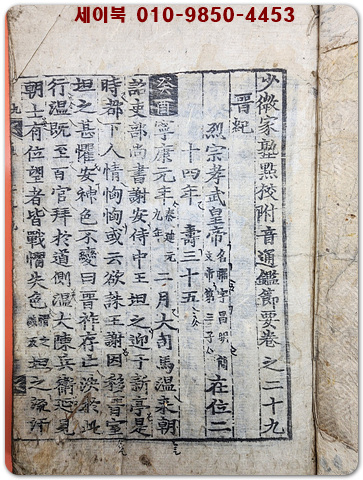 세이북 010-9850-4453
少微家塾點校附音通鑑節要卷之二十九
晋紀
烈宗孝武皇帝 名曜字昌明簡文帝第三子 在位二
十四年 壽三十五
癸酉 寧康元年 秦建元九年 二月大司馬溫來朝
詔吏部尚書謝安侍中王坦之迎于新亭是
時都下人情恟恟或云欲誅王謝因移晋室
坦之甚懼安神色不變曰晋祚存亡決於此
行溫旣至百官拜於道側溫大陳兵衛延見
朝士有位望者皆戰慴失色 坦之流汗